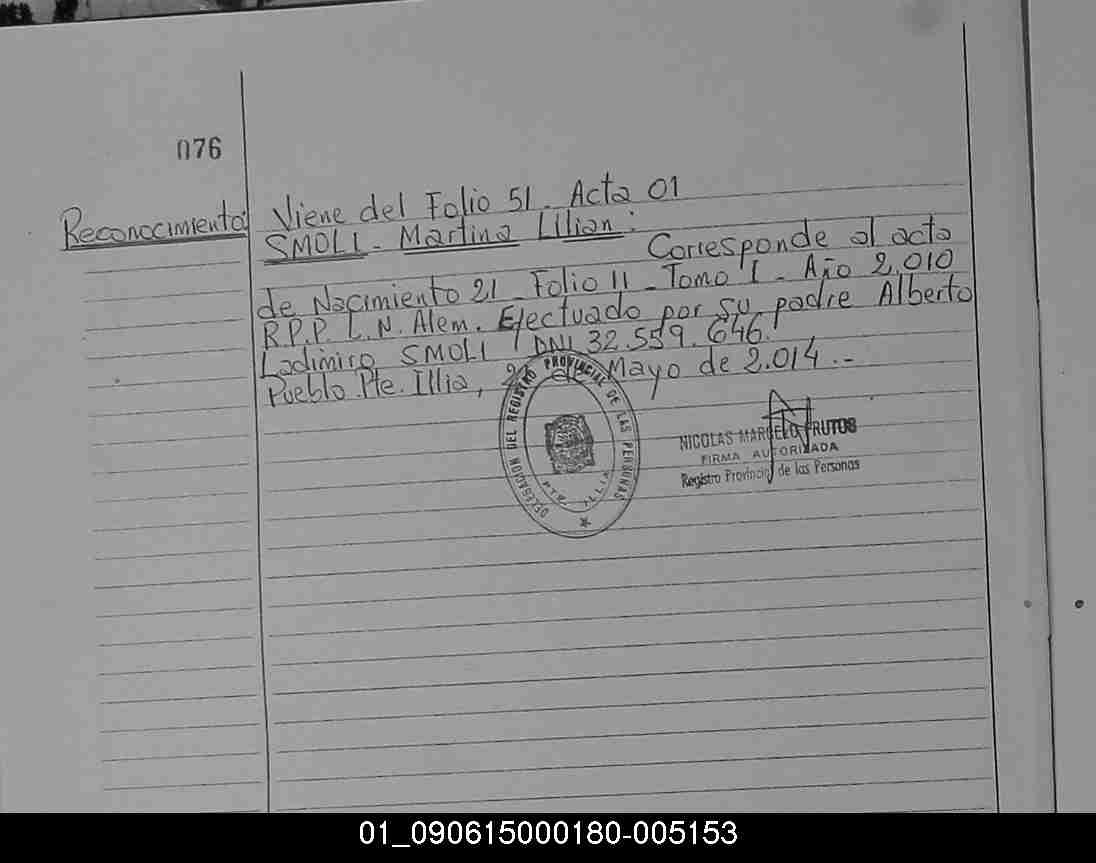 076
Reconocimiento: Viene del Folio 51. Acta 01
SMOLI - Martina Lilian:
Corresponde al acta
de Nacimiento 21 - Folio 11 - Tomo I - Año 2.010
R.P.P. L.N. Alem. Efectuado por su padre Alberto
Ladimiro SMOLI DNI 32.559.646.
Pueblo Pte. Illia, de Mayo de 2.014.--
DELEGACION DEL REGISTRO PROVINCIAL DE LAS PERSONAS
PTE. ILLIA
NICOLAS MARCELO FRUTOS
FIRMA AUTORIZADA
Registro Provincial de las Personas
01_090615000180-005153